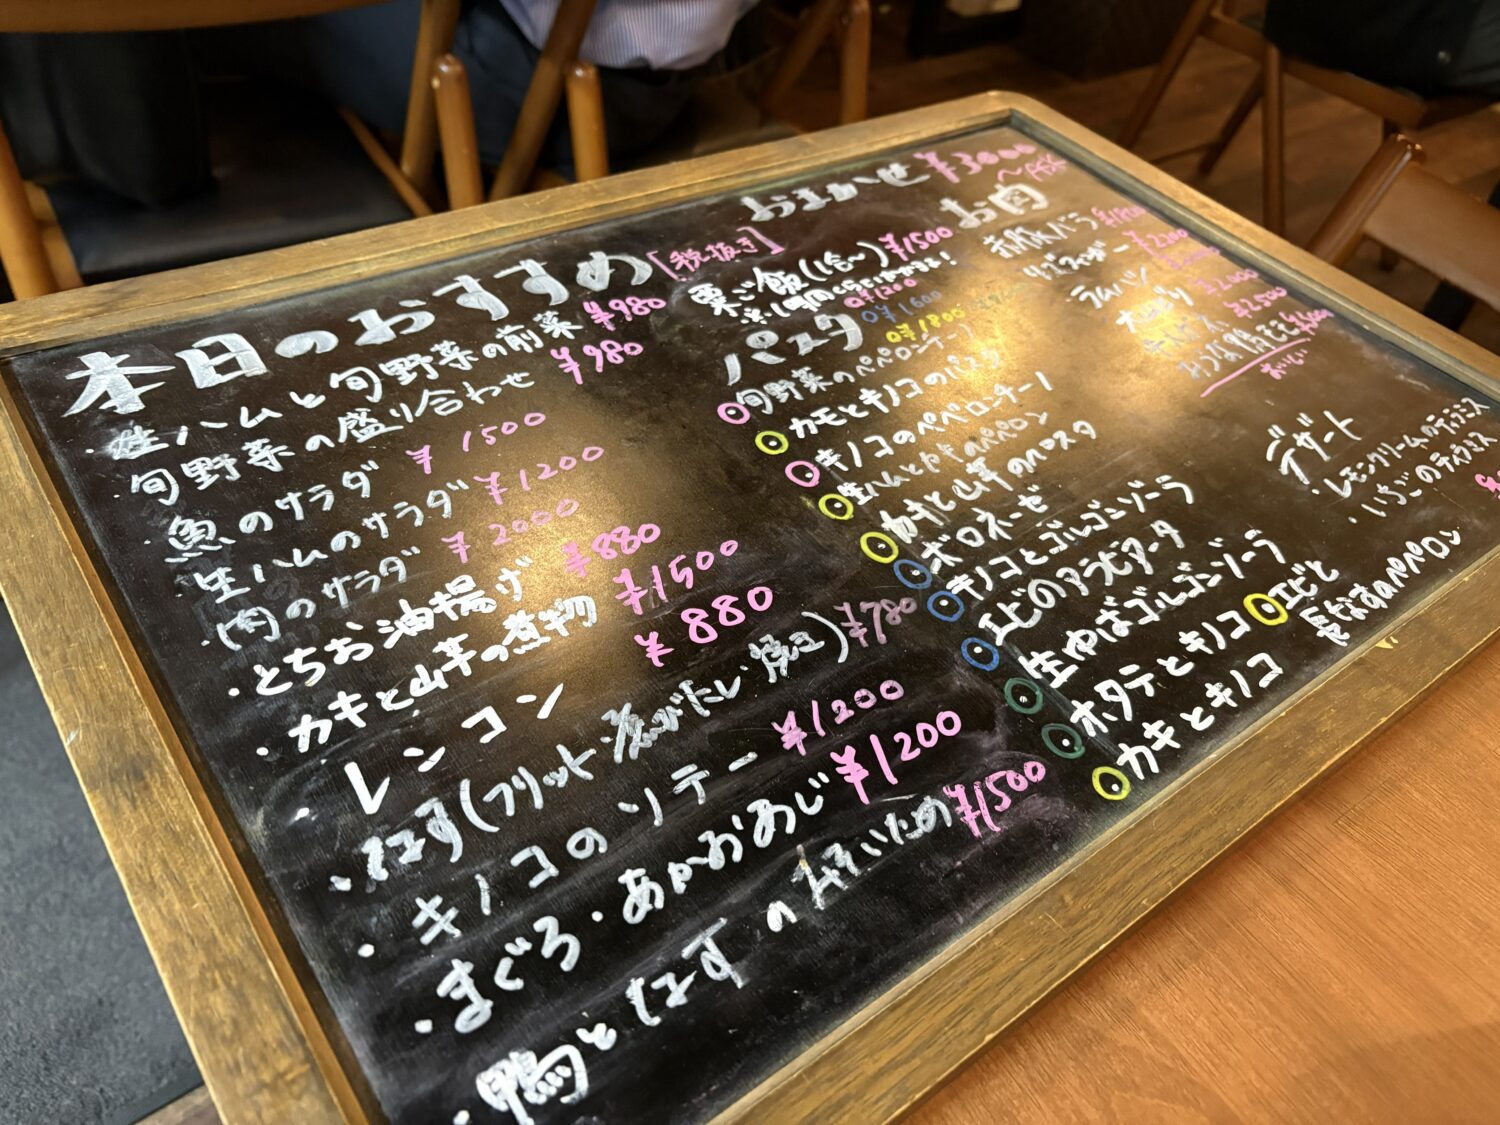 本日のおすすめ [税抜き]
・生ハムと旬野菜の前菜 ¥980
旬野菜の盛り合わせ ¥980
魚のサラダ ¥1500
生ハムのサラダ ¥1200
・肉のサラダ ¥2000
・とちお油揚げ ¥880
・カキと山芋の煮物 ¥1500
・レンコン ¥880
・なす(フリット・煮びたし・焼き) ¥780
・キノコのソテー ¥1200
・まぐろ・あかおあじ ¥1200
・鴨となすのみそいため ¥1500
おまかせ ¥3000
栗ご飯(1合〜) ¥1500
パスタ
¥1200
¥1600
¥1800
旬野菜のペペロンチーノ
カモとキノコのパスタ
キノコのペペロンチーノ
カキと山芋のパスタ
ボロネーゼ
キノコとゴルゴンゾーラ
エビのアラビアータ
生ゆばゴルゴンゾーラ
ホタテとキノコ
カキとキノコ
エビと
長なすのペペロン
お肉
デザート
・レモンクリームのティラミス
・いちごのティラミス